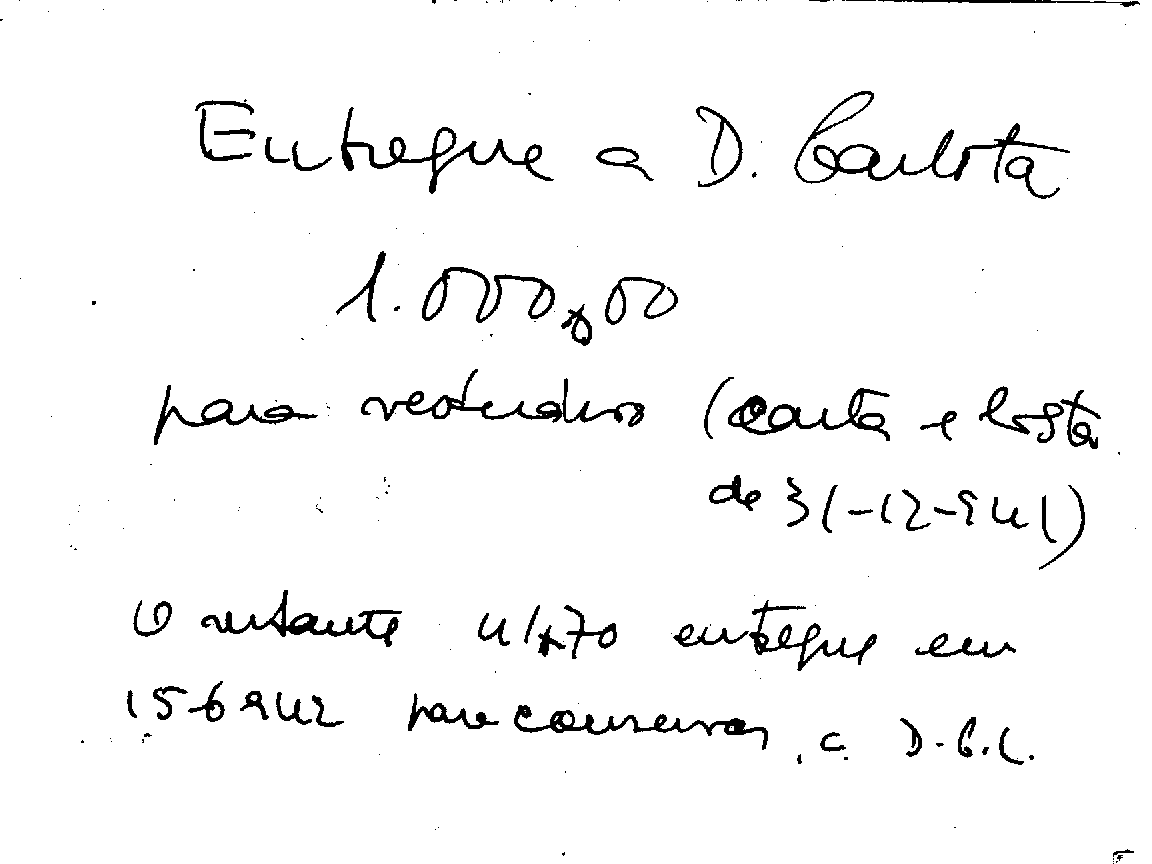 Entregue a D. Carlota
1.000,00
para vestuário (carta e lista
de 31-12-941)
O restante 41,70 entregue em
15-6 942 para conservas, a D. C. C.